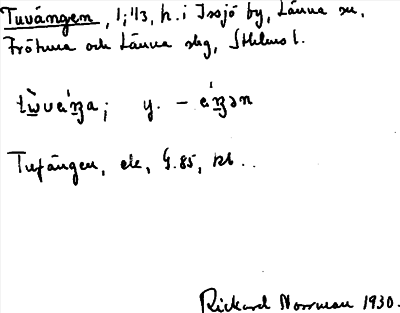 Tuvängen, 1; 1/3, h. i Issjö by, Länna sn,
Frötuna och Länna skg, Sthlms l.
tẁväṉ́ga; y. - äṉ́gən
Tufängen, ek, G. 85, kb..
Rickard Norrman 1930.